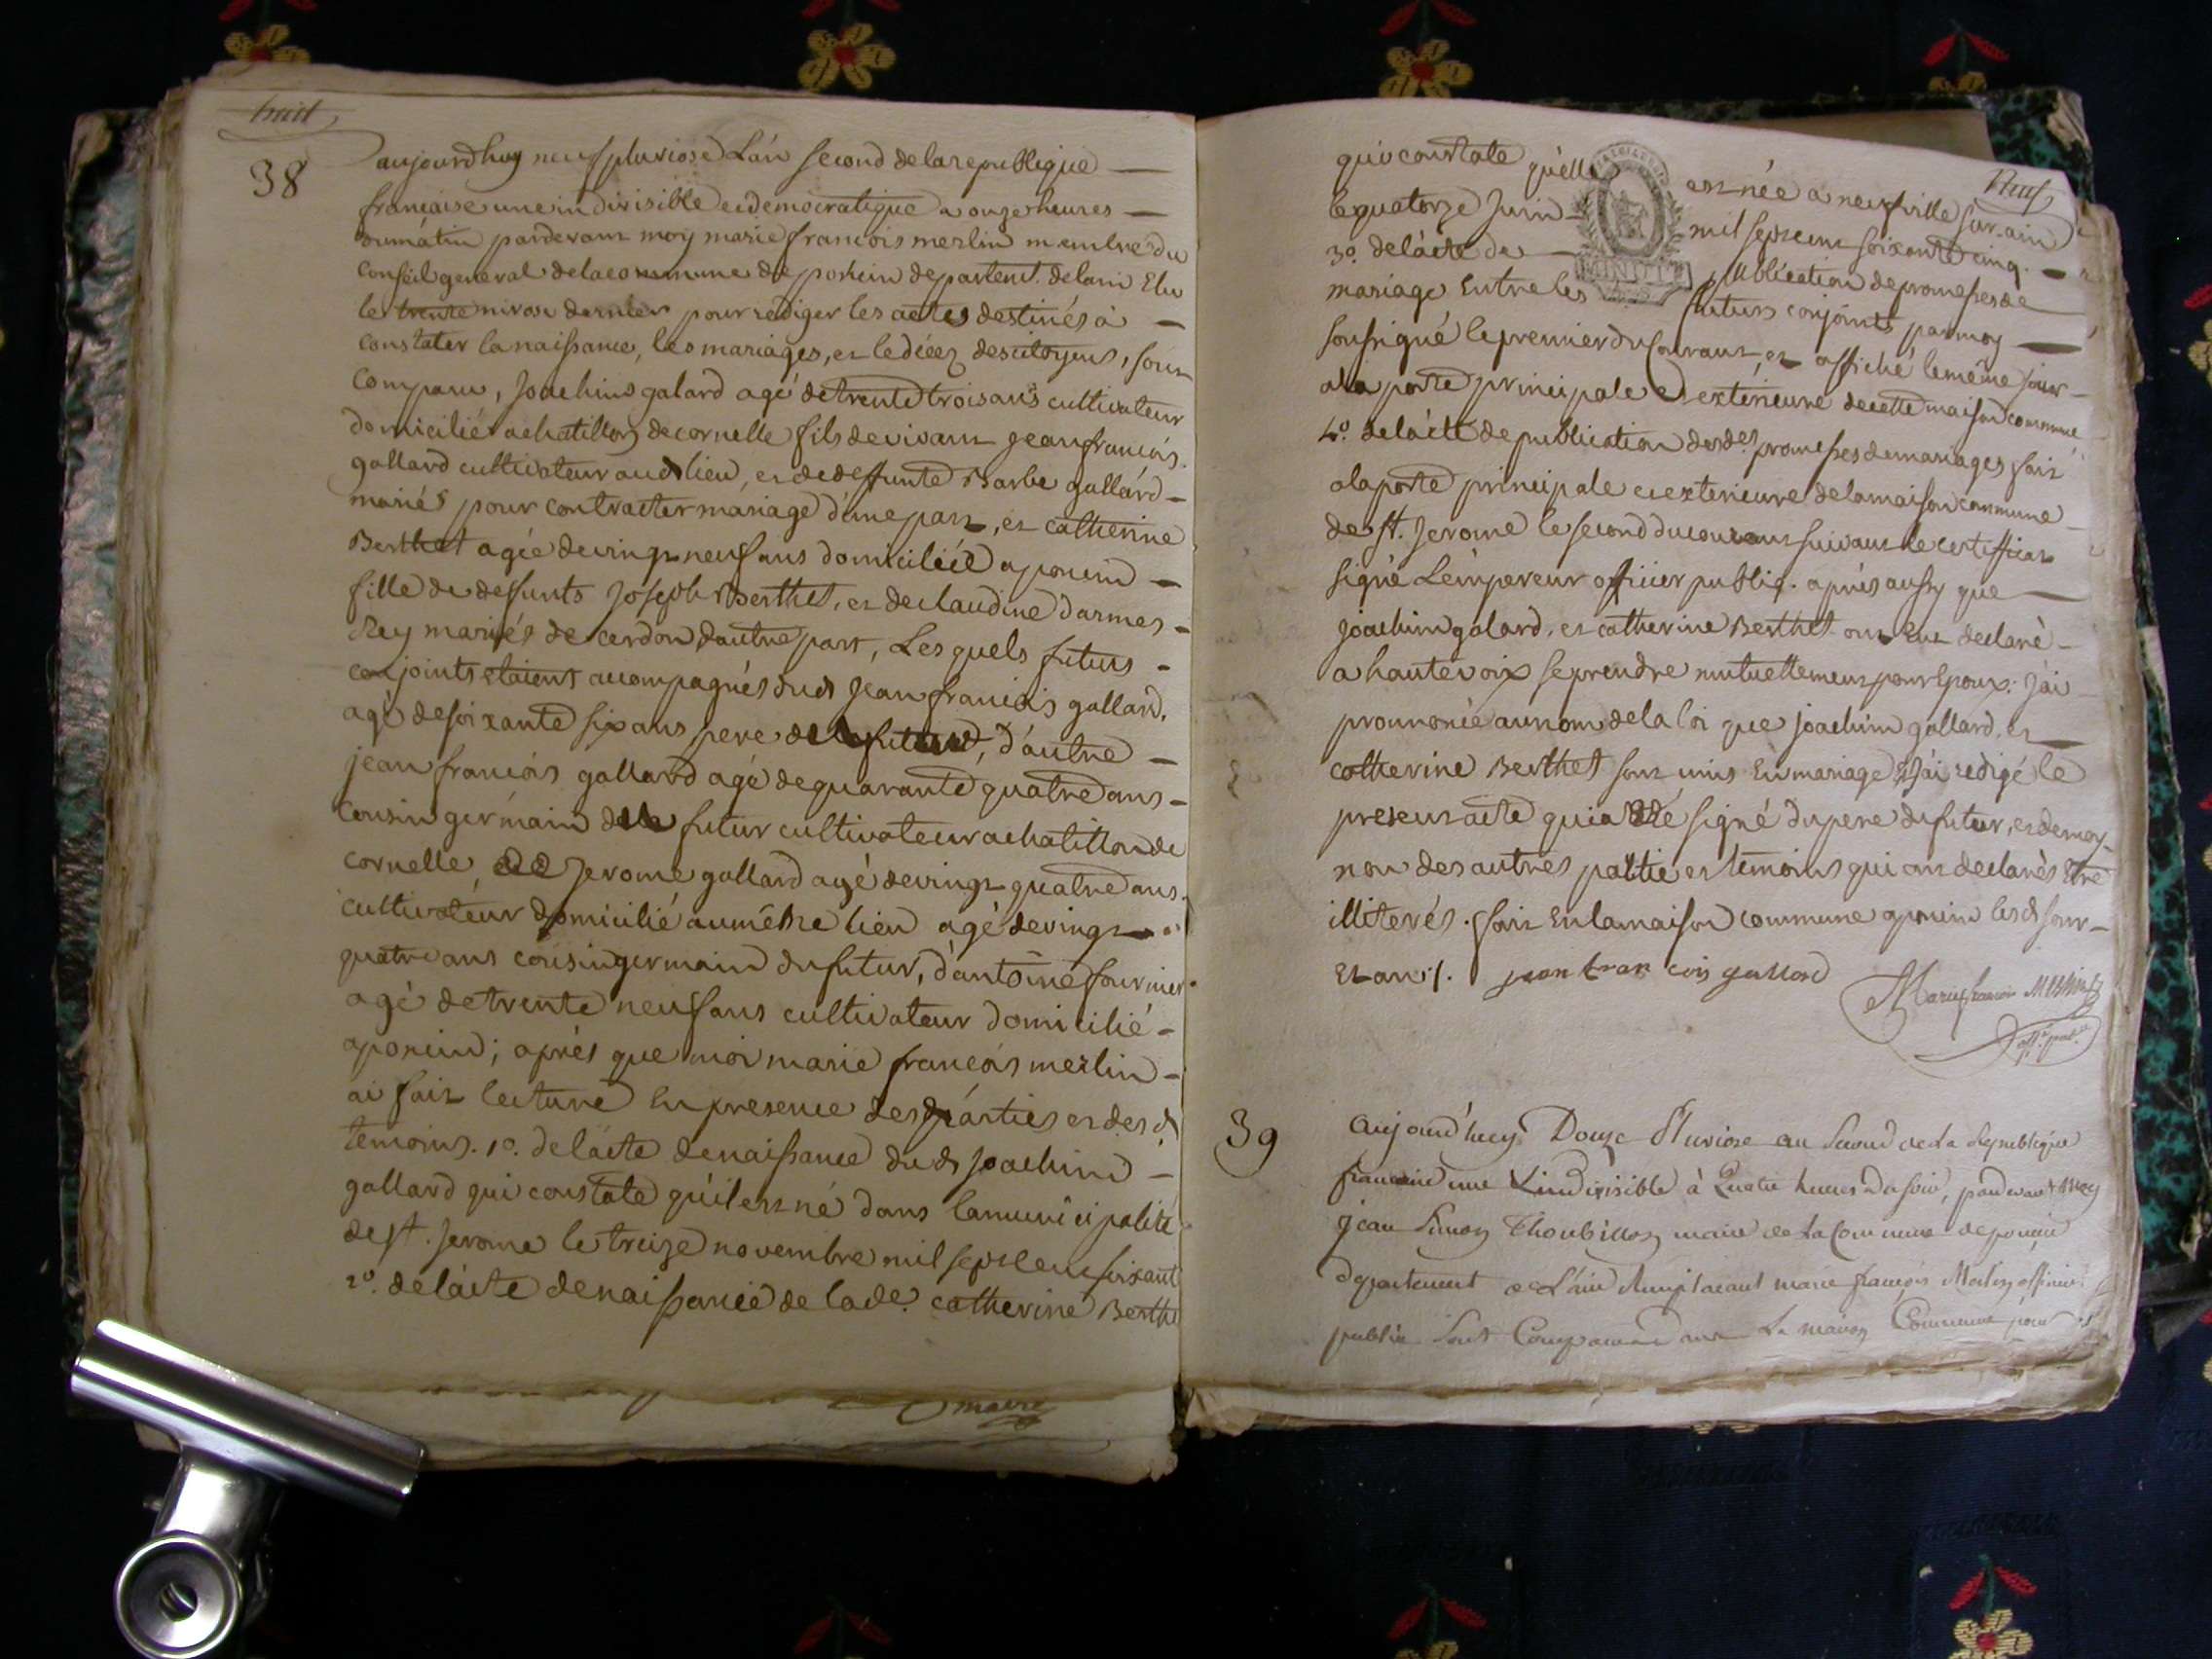 huit
38
aujourdhuy neuf pluviose L'an second de la republique
francaise une indivisible et democratique a onze heures
du matin pardevant moy marie francois merlin membre du
conseil general de la commune de poncin departemt. de lain Elu
le trente nivose dernier pour rediger les actes destinés à
constater la naissance, les mariages, et le décez des citoyens, sont
comparu, Joachim galard agé de trente trois ans cultivateur
domicilié a chatillon de cornelle fils de vivant jean francois
gallard cultivateur aud lieu, et de deffunte Barbe gallard
mariés pour contracter mariage d'une part, et catherine
Berthet agée de vingt neuf ans domiciliée a poncin
fille de defunts Joseph Berthet, et de claudine d'armes
Rey mariés de cerdon d'autre part, Lesquels futurs
conjoints etoient accompagnés dud Jean francois gallard,
agé de soixante six ans pere du futur, d'autre
jean francois gallard agé de quarante quatre ans
cousin germain de futur cultivateur a chatillon de
cornelle, de Jerome gallard agé de vingt quatre ans
cultivateur domicilié au même lieu agé de vingt
quatre ans cousin germain du futur, d'antoine fournier
agé de trente neuf ans cultivateur domicilié
a poncin; aprés que moi marie francois merlin
ai fait lecture En presence des parties et des d
temoins. 1o. de l'acte de naissance dud Joachim
gallard qui constate qu'il est né dans la municipalité
de st. Jerome le treize novembre mil sept cent soixant
2o. de l'acte de naissance de lade. catherine Berthe
maire
Neuf
qui constate qu'elle est née a neufville sur ain
le quatorze Juin mil sept cent soixante cinq.
3o. de l'acte de publication de promesses de
mariage Entre les futurs conjoints par moy
MINUTE
soussigné le premier du courant, et affiché le même jour
a la porte principale et exterieure de cette maison commune
4o. de l'acte de publication desdes. promesses de mariages fait
a la porte principale et exterieure de la maison commune
de st. Jerome le second du courant suivant le certifficat
signé L'empereur officier public. aprés aussy que
joachim galard, et catherine Berthet ont Eut declaré
a haute voix se prendre mutuellement pour Epoux; J'ai
prounoncée au nom de la loi que joachim gallard, et
catherine Berthet sont unis En mariage Et J'ai redigé le
present acte qui a Eté signé du pere du futur, et de moy
non des autres partie et temoins qui ont declarés Etre
illiterés. fait En la maison commune a poncin lesd jour
Et an ./. jean fran cois gallard
Marie francois Merlin
offr. pub.
39
Aujourd'huy Douze Pluviose an Second de La Republique
francaise une & indivisible à Quatre heures du soir, pardevant Moy
Jean Simon Thoubillon maire de La Commune de poncin
departement de L'ain Remplacant marie françois Merlin officier
public Sont Comparu La maison Commune pour